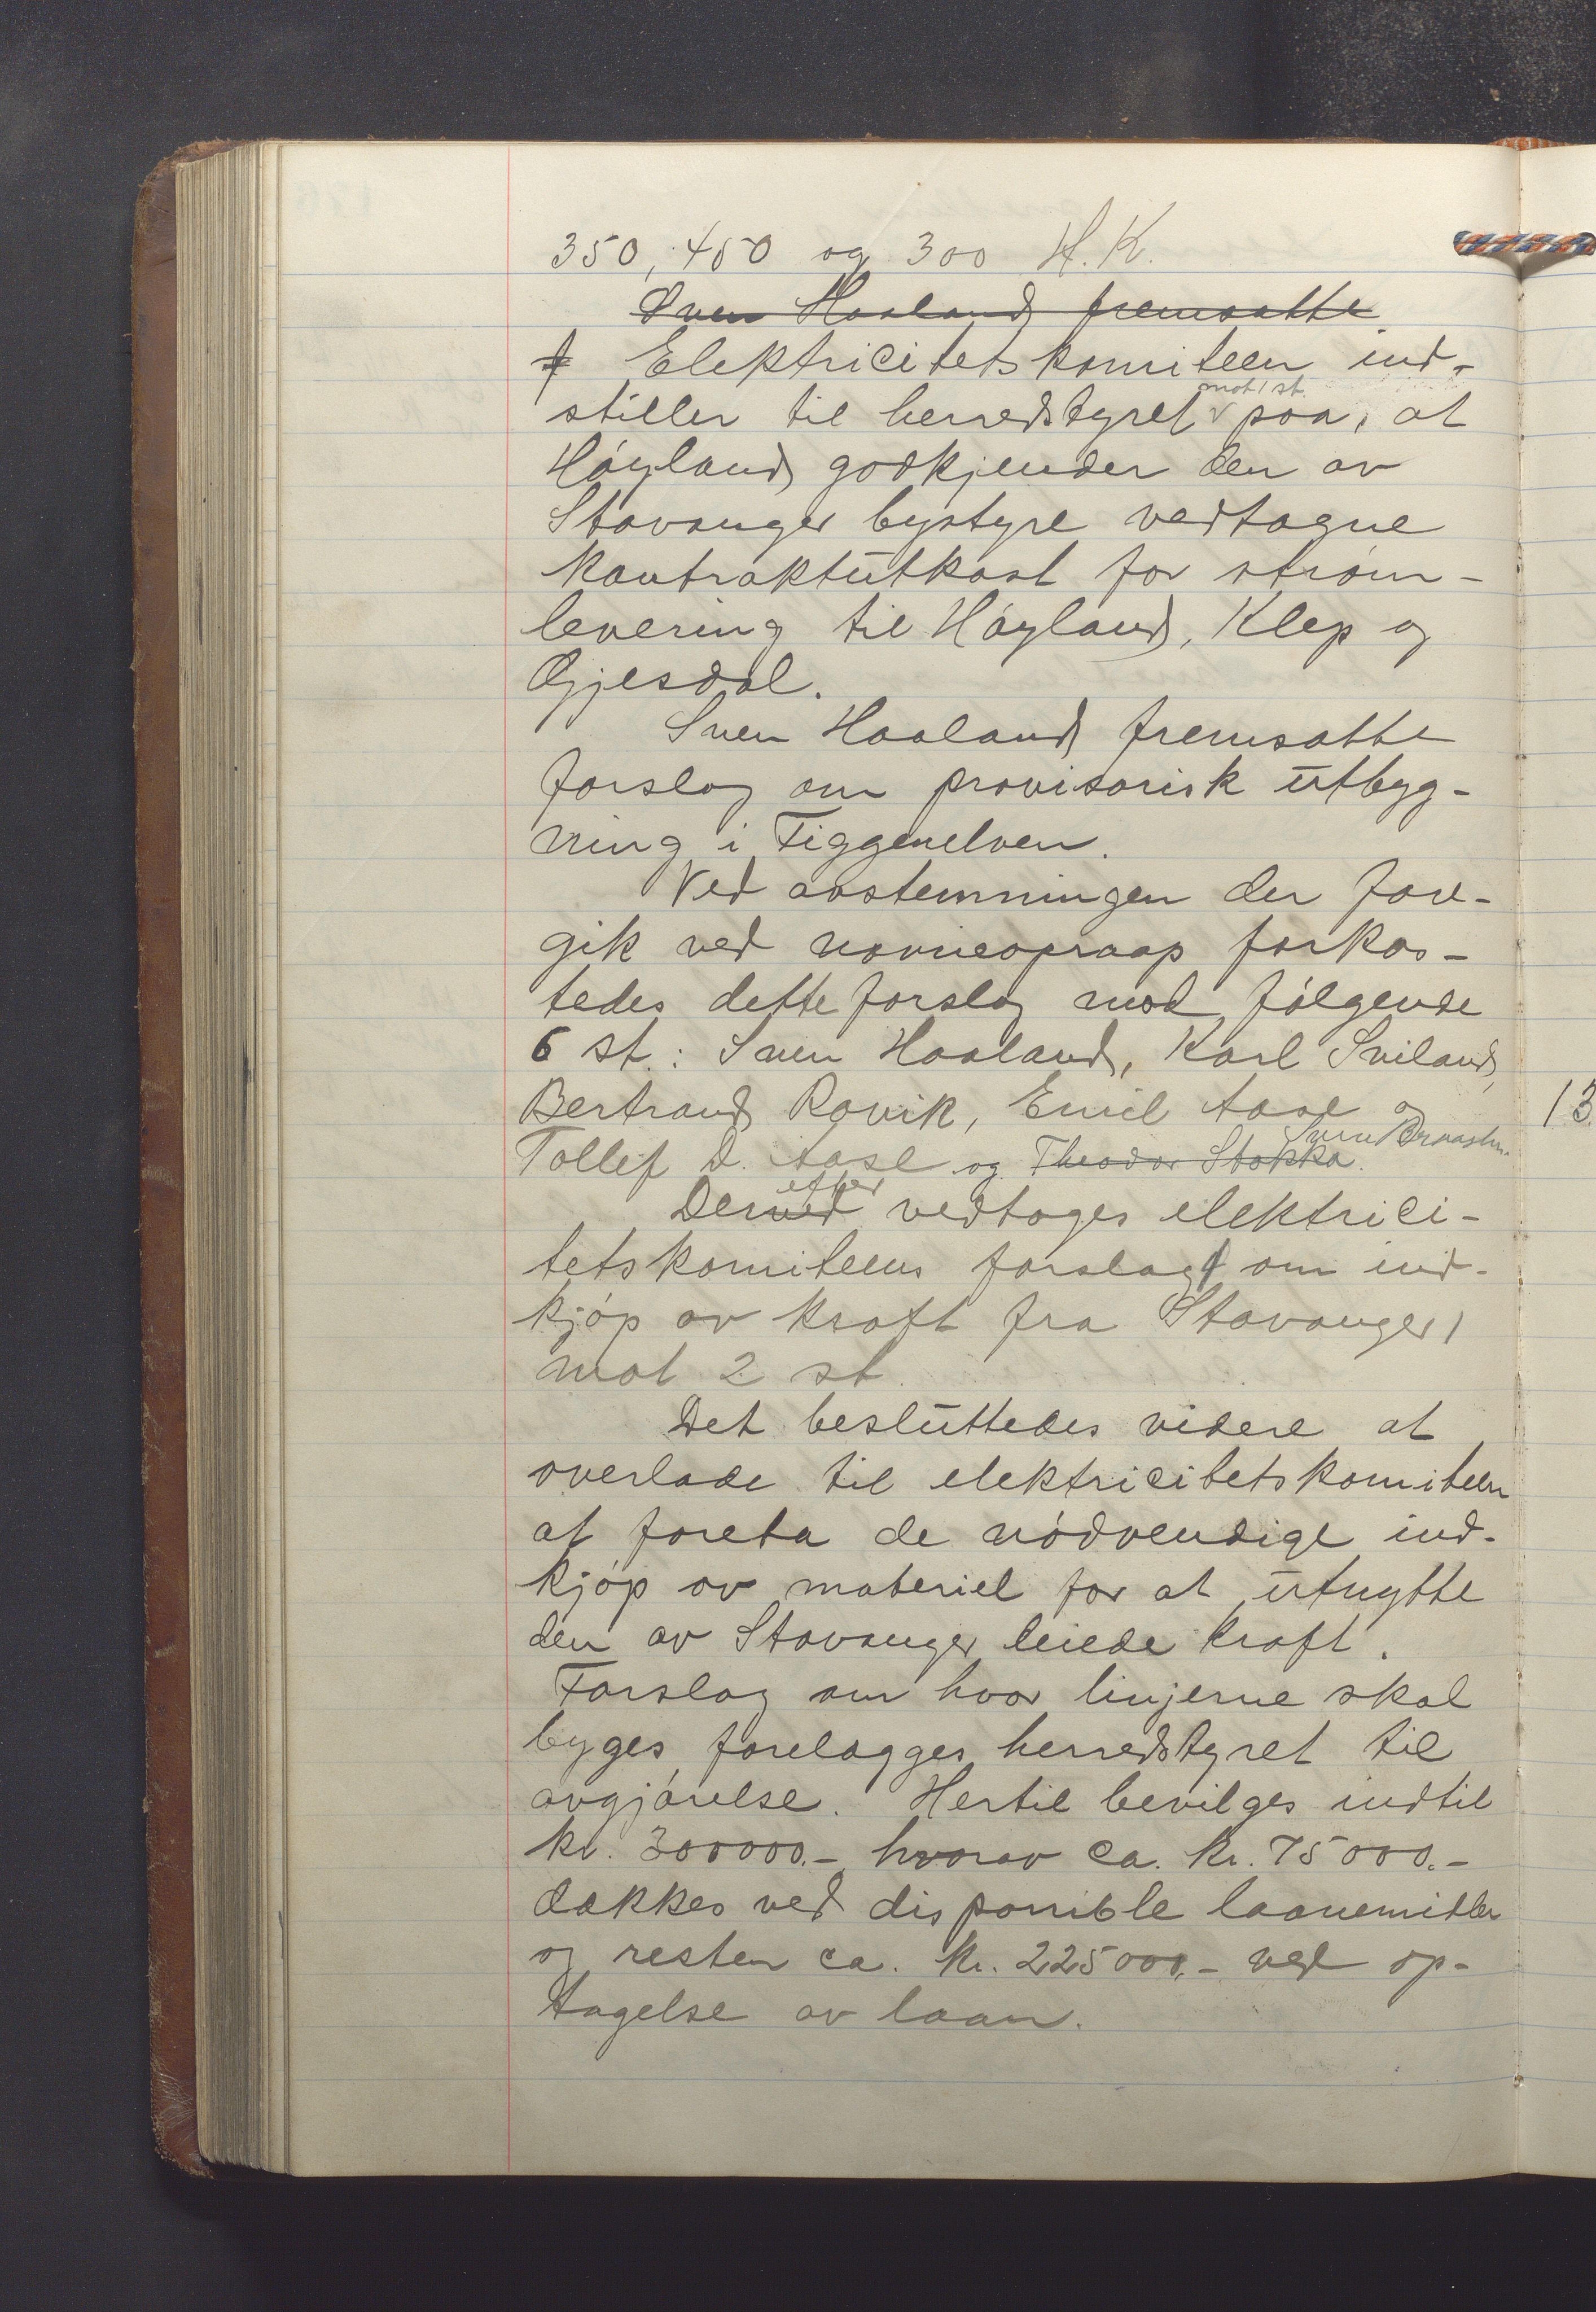 350, 450 og 300 H.K.
Sven Haaland fremsatte
f Elektricitetskomiteen ind-
stiller til herredstyret mot 1 st. paa, at
Høyland godkjender den av
Stavanger bystyre vedtagne
kontraktutkast for strøm-
levering til Høyland, Klep og
Gjesdal.
Sven Haaland fremsatte
forslag om provisorisk utbyg-
ning i Figgenelven.
Ved avstemningen der fore-
gik ved navneopraap forkas-
tedes dette forslag mod følgende
6 st.: Sven Haaland, Karl Sviland,
Bertrand Ravik, Emil Aase og
Tollef D. Aase og Theodor Stokka. Sven Braasten
Derved efter vedtoges elektrici-
tetskomiteens forslag om ind-
kjøp av kraft fra Stavanger,
mot 2 st.
Det besluttedes videre at
overlade til elektricitetskomiteen
at foreta de nødvendige ind-
kjøp av materiel for at utnytte
den av Stavanger leiede kraft.
Forslag om hvor linjerne skal
byges forelægges herredstyret til
avgjørelse. Hertil bevilges indtil
kr. 300000.- hvorav ca. kr. 75000.-
dækkes ved disponible laanemidler
og resten ca. kr. 225000.- ved op-
tagelse av laan.
13